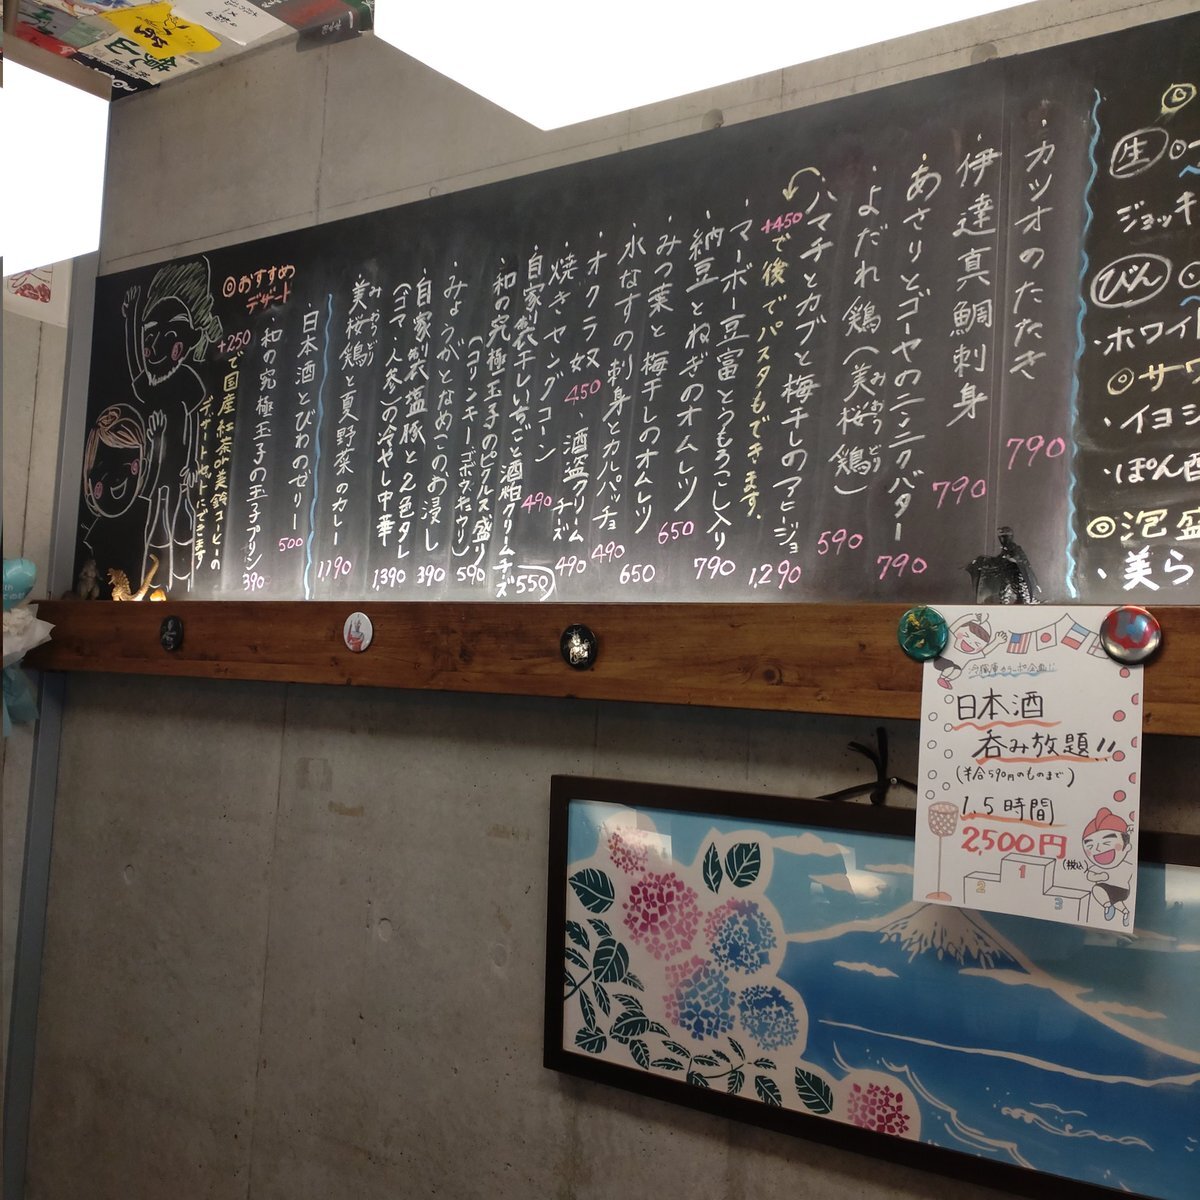 ・カツオのたたき 790
・伊達真鯛刺身 790
・あさりとゴーヤのニンニクバター 790
・よだれ鶏(美桜鶏) 590
みおうどり
・ハマチとカブと梅干しのアヒージョ 1,290
+450で後でパスタもできます。
・マーボー豆富とうもろこし入り 790
・納豆とねぎのオムレツ 650
・みつ葉と梅干しのオムレツ 650
・水なすの刺身とカルパッチョ 490
・オクラ奴 450 ・酒盗クリームチーズ 490
・焼きヤングコーン 490
・自家製干しいちごと酒粕クリームチーズ 550
・和の究極玉子のピクルス盛り 590
(コリンキーゴボウキュウリ)
・みょうがとなめこのお浸し 390
・自家製塩豚と2色タレ
(ゴマ・人参)の冷やし中華 1,390
みおうどり
・美桜鶏と夏野菜のカレー 1,190
・日本酒とびわのゼリー 500
・和の究極玉子の玉子プリン 390
◎おすすめ
デザート
+250で国産紅茶or美鈴コーヒーの
デザートセットにできます
◎
生
ジョッキ
びん
・ホワイ
◎サワ
・イヨ
・ぽん
◎泡盛
・美ら
日本酒
呑み放題!!
(半合590円のものまで)
1.5時間
2,500円
(税込)
1
2
3